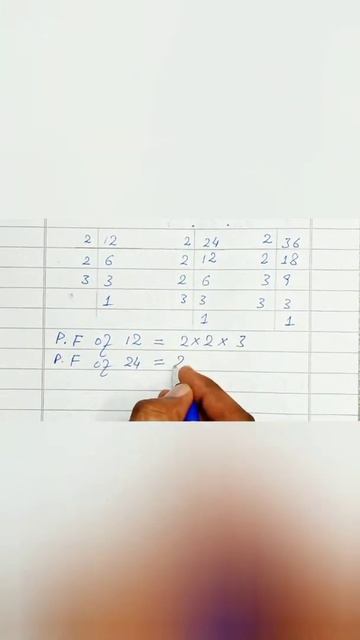 2 12 2 24 2 36
2 6 2 12 2 18
3 3 2 6 3 9
1 3 3 3 3
1 1
P.F of 12 = 2 × 2 × 3
P.F of 24 = 2